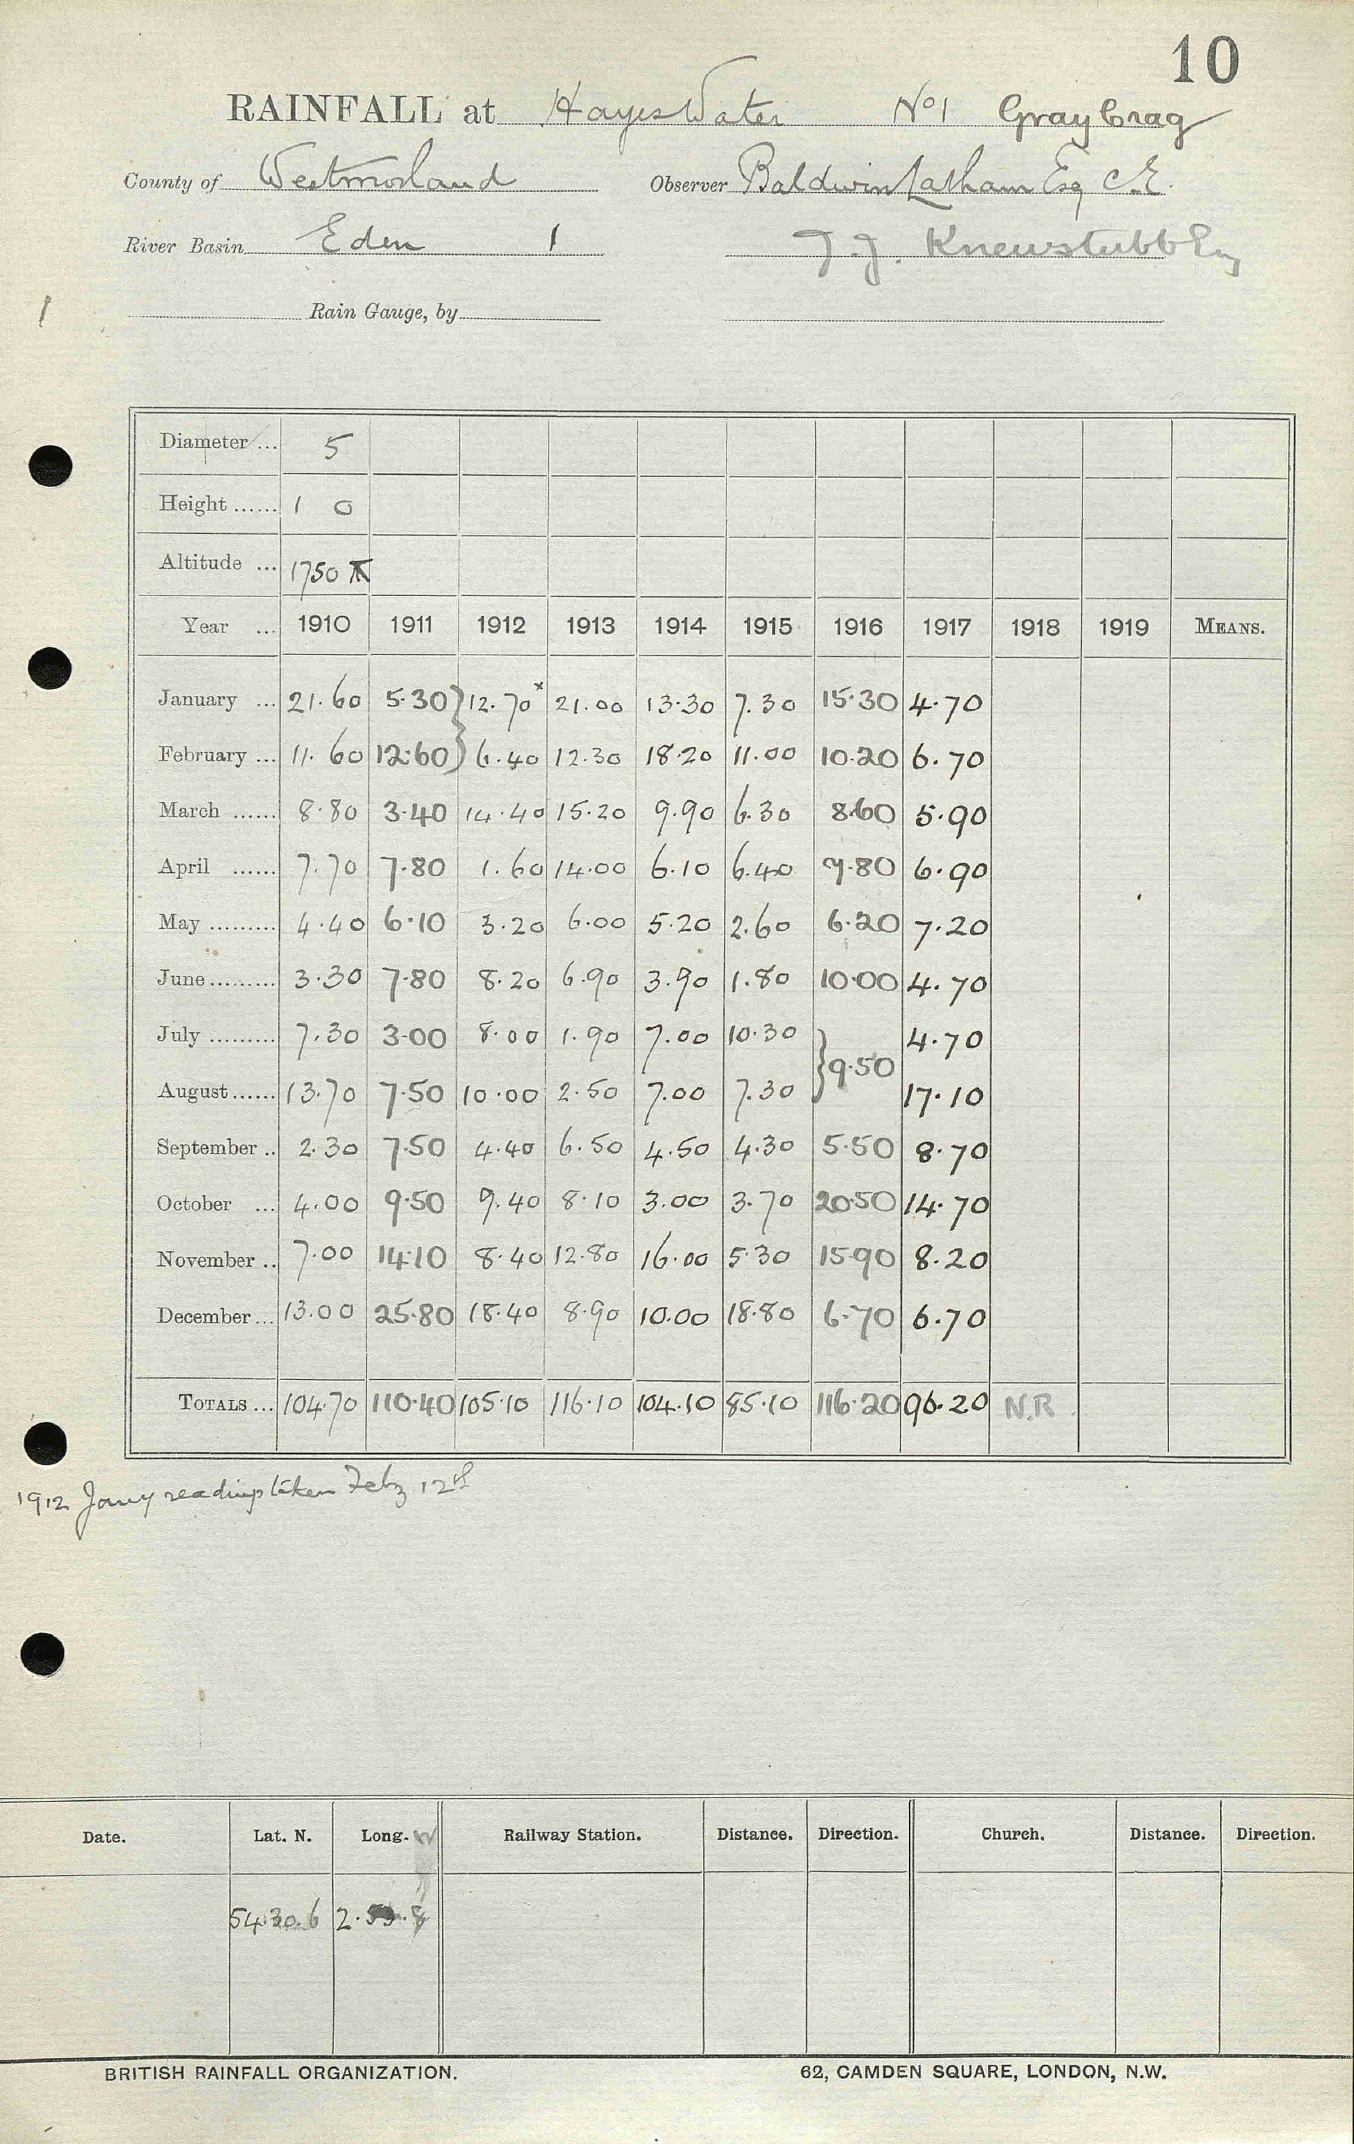 10
RAINFALL at Hayes Water No 1 Gray Crag
County of Westmorland Observer Baldwin Latham Esq C.E.
River Basin Eden 1 T. J. Knewstubb Esq
1 Rain Gauge, by
Diameter ... 5
Height ...... 1 0
Altitude ... 1750
Year ... 1910 1911 1912 1913 1914 1915 1916 1917 1918 1919 MEANS.
January ... 21.60 5.30 } 12.70x 21.00 13.30 7.30 15.30 4.70
February ... 11.60 12.60 } 6.40 12.30 18.20 11.00 10.20 6.70
March ...... 8.80 3.40 14.40 15.20 9.90 6.30 8.60 5.90
April ...... 7.70 7.80 1.60 14.00 6.10 6.40 7.80 6.90
May ......... 4.40 6.10 3.20 6.00 5.20 2.60 6.20 7.20
June ......... 3.30 7.80 8.20 6.90 3.90 1.80 10.00 4.70
July ......... 7.30 3.00 8.00 1.90 7.00 10.30 } 9.50 4.70
August ...... 13.70 7.50 10.00 2.50 7.00 7.30 17.10
September .. 2.30 7.50 4.40 6.50 4.50 4.30 5.50 8.70
October ... 4.00 9.50 9.40 8.10 3.00 3.70 20.50 14.70
November .. 7.00 14.10 8.40 12.80 16.00 5.30 15.90 8.20
December ... 13.00 25.80 18.40 8.90 10.00 18.80 6.70 6.70
TOTALS ... 104.70 110.40 105.10 116.10 104.10 85.10 116.20 96.20 N.R.
1912 Jany reading taken Feby 12th
Date. Lat. N. Long. W Railway Station. Distance. Direction. Church. Distance. Direction.
54.30.6 2.
BRITISH RAINFALL ORGANIZATION. 62, CAMDEN SQUARE, LONDON, N.W.